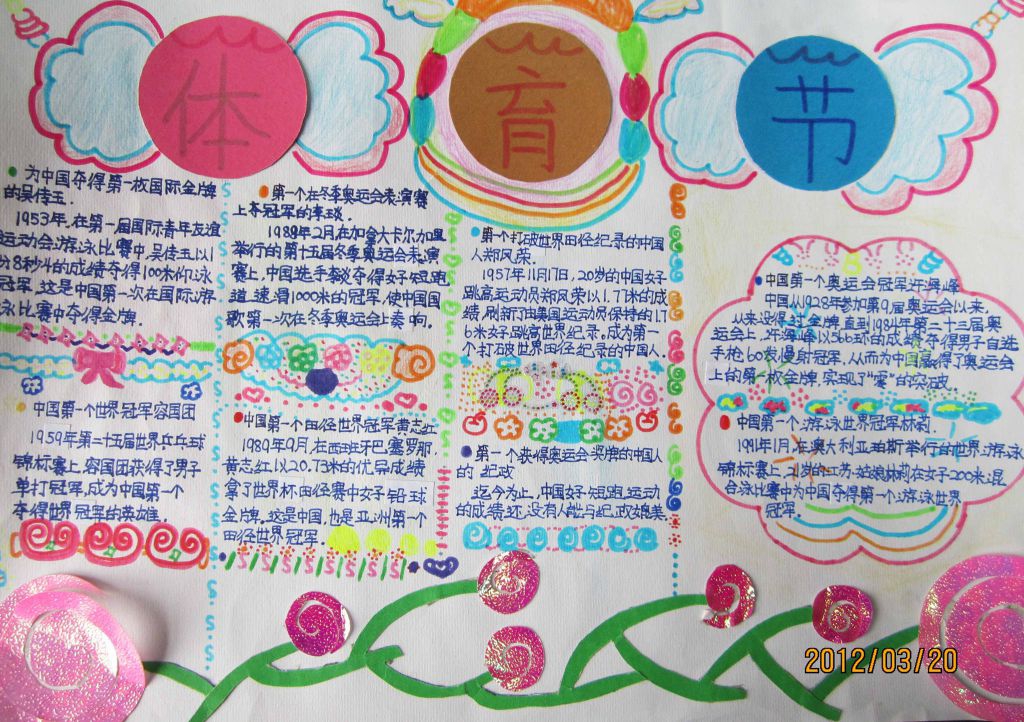 体育节
为中国夺得第一枚国际金牌
的吴传玉.
1953年,在第一届国际青年友谊
运动会游泳比赛中,吴传玉以1
分8秒4的成绩夺得100米仰泳
冠军,这是中国第一次在国际游
泳比赛中夺得金牌.
中国第一个世界冠军容国团
1959年第二十五届世界乒乓球
锦标赛上,容国团获得了男子
单打冠军,成为中国第一个
夺得世界冠军的英雄.
第一个在冬季奥运会表演赛
上夺冠军的李琰.
1988年2月,在加拿大卡尔加里
举行的第十五届冬季奥运会表演
赛上,中国选手李琰夺得女子短跑
道速滑1000米的冠军,使中国国
歌第一次在冬季奥运会上奏响.
中国第一个田径世界冠军黄志红
1989年9月,在西班牙巴塞罗那,
黄志红以20.73米的优异成绩
拿了世界杯田径赛中女子铅球
金牌。这是中国,也是亚洲第一个
田径世界冠军.
第一个打破世界田径纪录的中国
人郑凤荣.
1957年11月17日,20岁的中国女子
跳高运动员郑凤荣以1.77米的成
绩,刷新了由美国运动员保持的1.76
米女子跳高世界纪录,成为第一
个打破世界田径纪录的中国人.
第一个获得奥运会奖牌的中国人
的 纪政
迄今为止,中国女子短跑运动
的成绩还没有人能与纪政媲美.
中国第一个奥运会冠军许海峰
中国从1928年参加第9届奥运会以来,
从来没得过金牌,直到1984年第二十三届奥
运会上,许海峰以566环的成绩夺得男子自选
手枪60发慢射冠军,从而为中国赢得了奥运会
上的第一枚金牌,实现了“零”的突破.
中国第一个游泳世界冠军林莉.
1991年1月,在澳大利亚珀斯举行的世界游泳
锦标赛上,21岁的江苏姑娘林莉在女子200米混
合泳比赛中为中国夺得第一个游泳世界
冠军.
2012/03/20